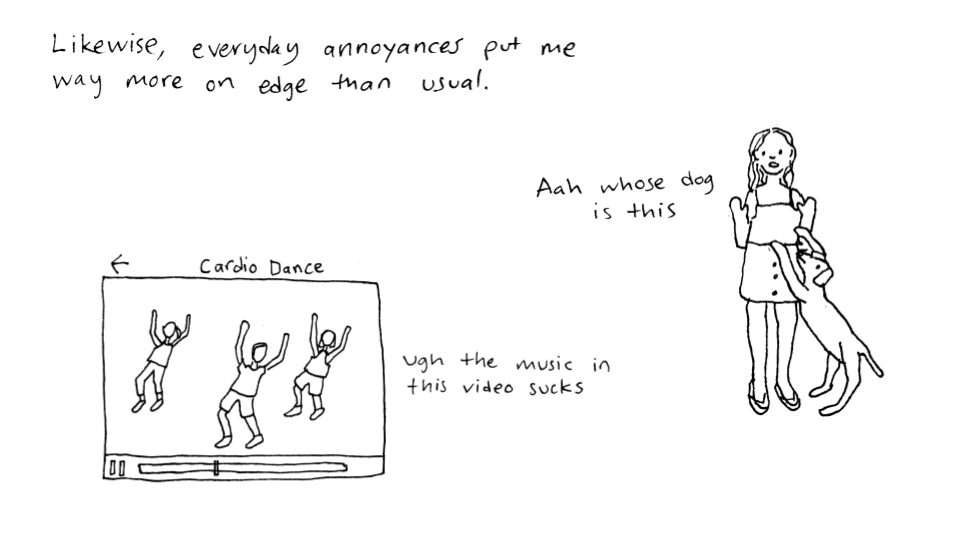 Likewise, everyday annoyances put me
way more on edge than usual.
Aah whose dog
is this
← Cardio Dance
ugh the music in
this video sucks